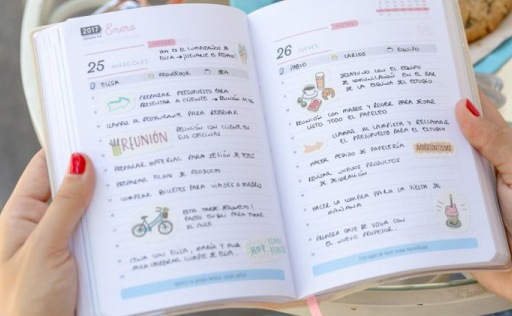 2017
Enero
25 MIÉRCOLES
HOY ES EL CUMPLEAÑOS DE
ELISA → ¡LLEVARLE EL REGALO!
ELISA
PROVEEDOR
PREPARAR PRESUPUESTO PARA
PRESENTAR A CLIENTE → REUNIÓN
LLAMAR AL RESTAURANTE PARA RESERVAR
REUNIÓN
REUNIÓN CON CLIENTE EN
SUS OFICINAS
PREPARAR MATERIAL PARA SESIÓN DE FOTOS
PREPARAR FICHA DE PRODUCTO
COMPRAR BILLETES PARA VIAJES A MADRID
ESTA TARDE
PASEO EN BICI PARA TOMAR
EL AIRE
CENA CON ELISA, MARÍA Y ANA
PARA CELEBRAR CUMPLE DE ELISA
HOY
26 JUEVES
PABLO
CARLOS
EQUIPO
DESAYUNO CON EL EQUIPO
DE COMUNICACIÓN EN EL BAR
DE LA ESQUINA DEL ESTUDIO
REUNIÓN CON MARCOS Y ROGER PARA DEJAR
LISTO TODO EL PAPELEO
LLAMAR AL LAMPISTA Y RECLAMAR
EL PRESUPUESTO PARA EL ESTUDIO
HACER PEDIDO DE PAPELERÍA
REVISAR NUEVOS PRODUCTOS
DE DECORACIÓN
HACER LA COMPRA PARA LA FIESTA DE
MAÑANA
PRIMERA CLASE DE YOGA CON
EL NUEVO PROFESOR